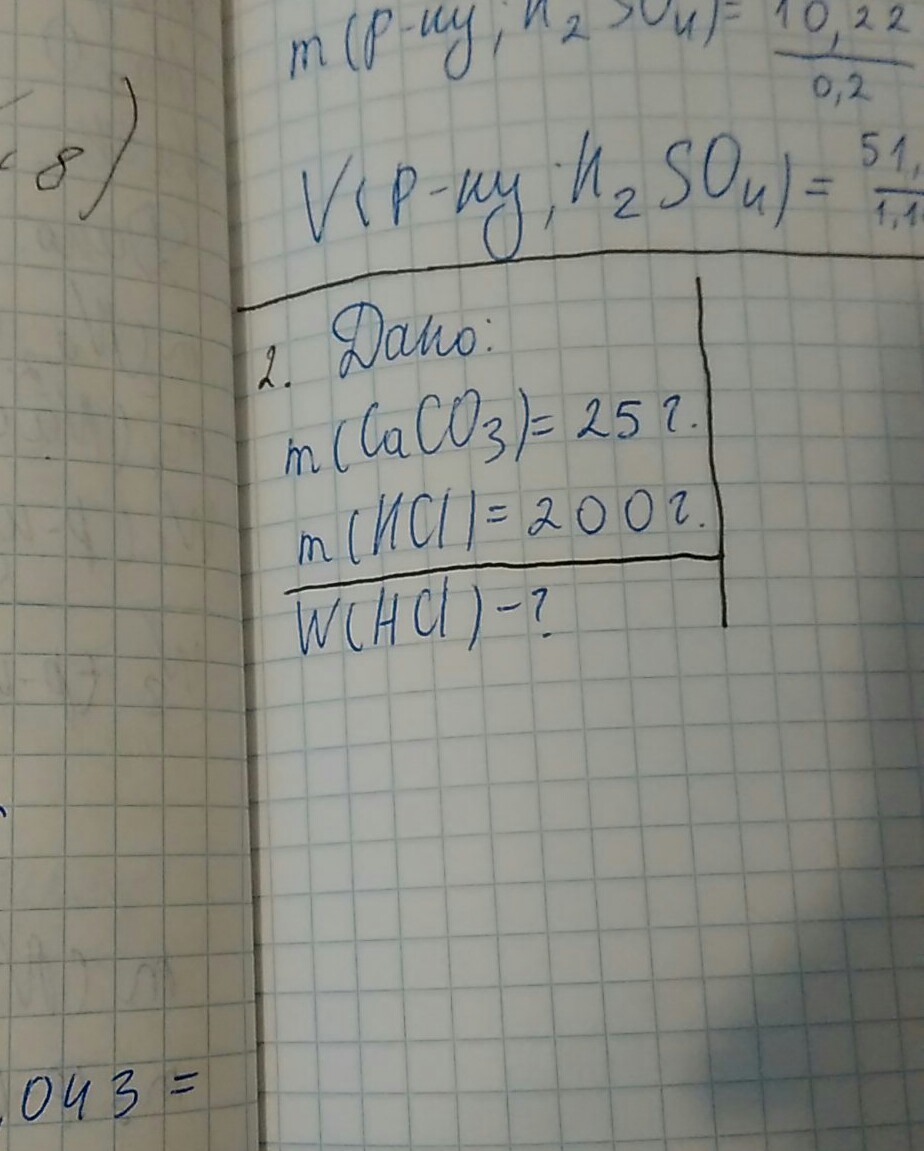 8)
,043 =
m(р-ну; H₂SO₄) = 10,22
0,2
V(р-ну; H₂SO₄) = 51,
1,1
2. Дано:
m(CaCO₃) = 25 г.
m(HCl) = 200 г.
W(HCl) - ?